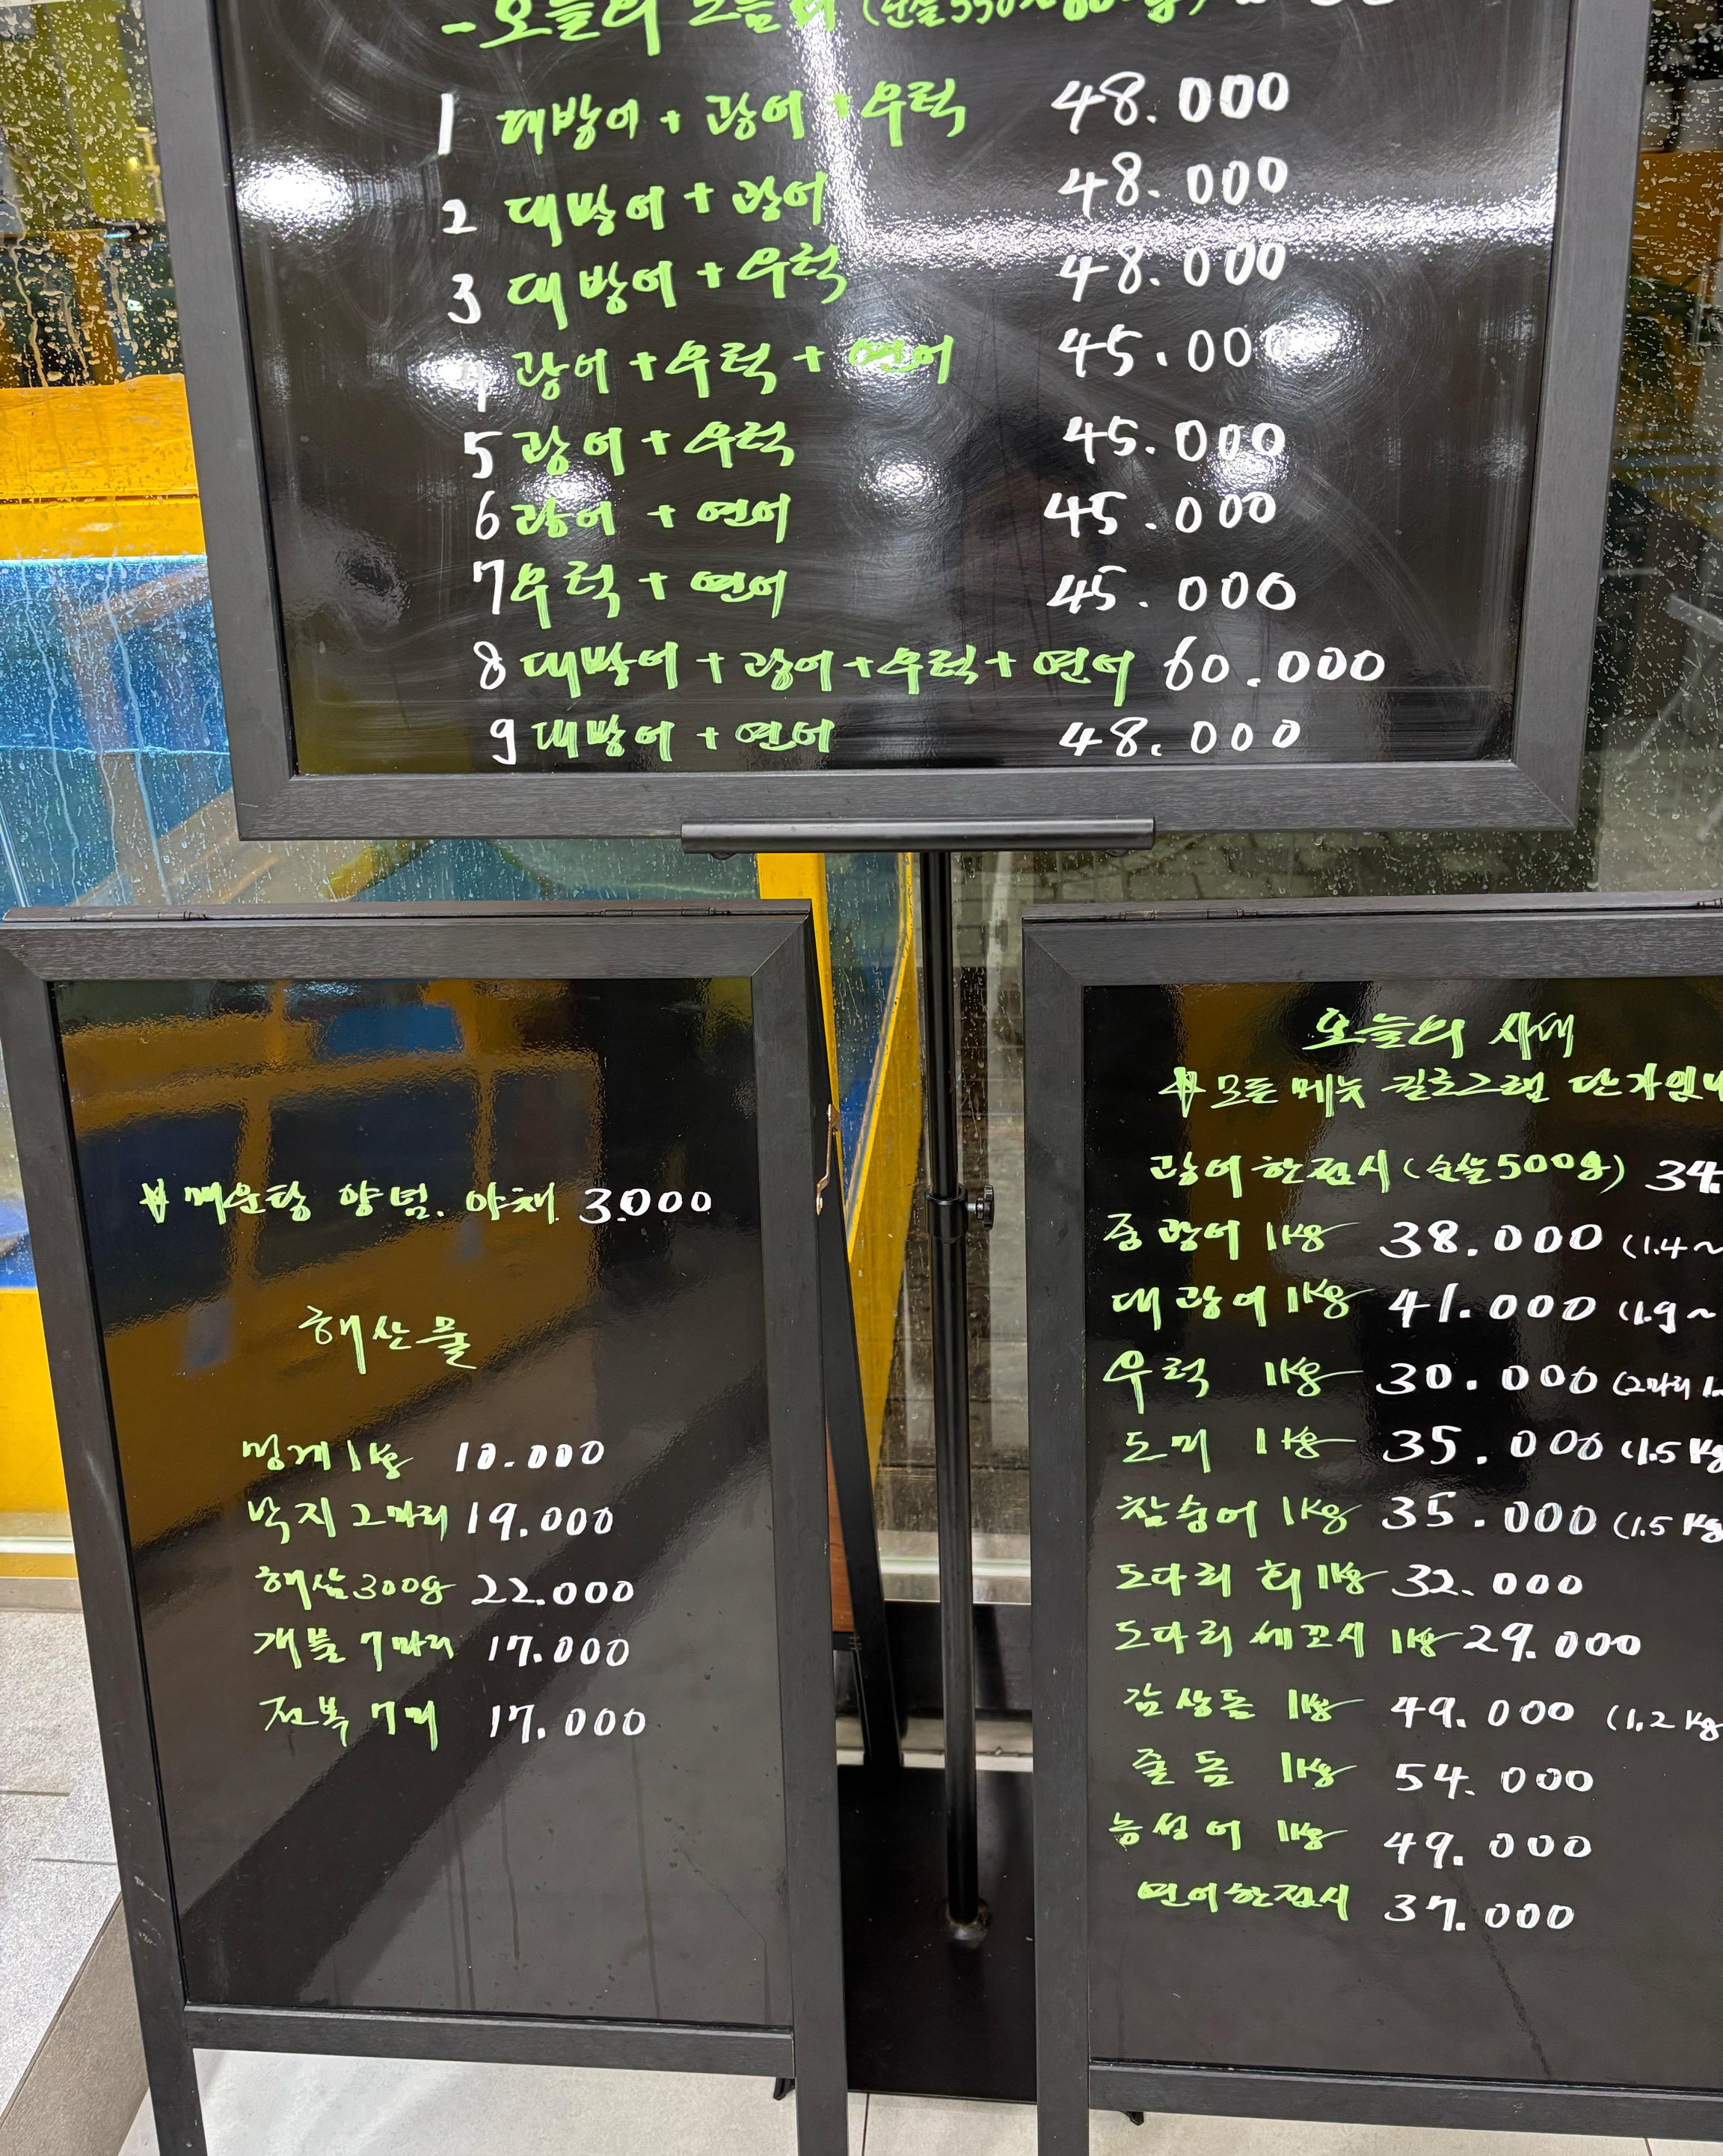 -오늘의 모듬회
1 대방어 + 광어 + 우럭 48.000
2 대방어 + 광어 48.000
3 대방어 + 우럭 48.000
4 광어 + 우럭 + 연어 45.000
5 광어 + 우럭 45.000
6 광어 + 연어 45.000
7 우럭 + 연어 45.000
8 대방어 + 광어 + 우럭 + 연어 60.000
9 대방어 + 연어 48.000
매운탕 양념. 야채 3.000
해산물
멍게 1kg 10.000
낙지 2마리 19.000
해삼 300g 22.000
개불 7마리 17.000
전복 7미 17.000
오늘의 시세
모든 메뉴 킬로그램 단가입니
광어 한접시 (순살 500g) 34.
중광어 1kg 38.000 (1.4~
대광어 1kg 41.000 (1.9~
우럭 1kg 30.000 (2마리 1.
도미 1kg 35.000 (1.5kg
참숭어 1kg 35.000 (1.5kg
도다리 회 1kg 32.000
도다리 세꼬시 1kg 29.000
감성돔 1kg 49.000 (1.2kg
줄돔 1kg 54.000
능성어 1kg 49.000
연어 한접시 37.000